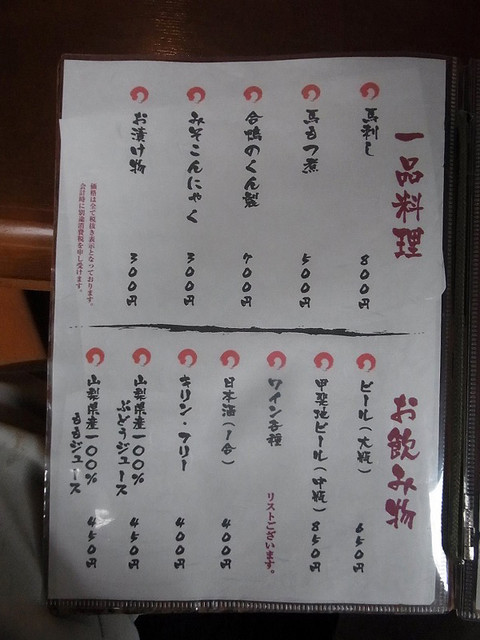 一品料理
馬刺し 800円
馬もつ煮 500円
合鴨のくん製 700円
みそこんにゃく 300円
お漬け物 300円
価格は全て税抜き表示となっております。
会計時に別途消費税を申し受けます。
お飲み物
ビール(大瓶) 650円
甲斐地ビール(中瓶) 850円
ワイン各種
リストございます。
日本酒(1合) 400円
キリン・フリー 400円
山梨県産一〇〇%
ぶどうジュース 450円
山梨県産一〇〇%
ももジュース 450円